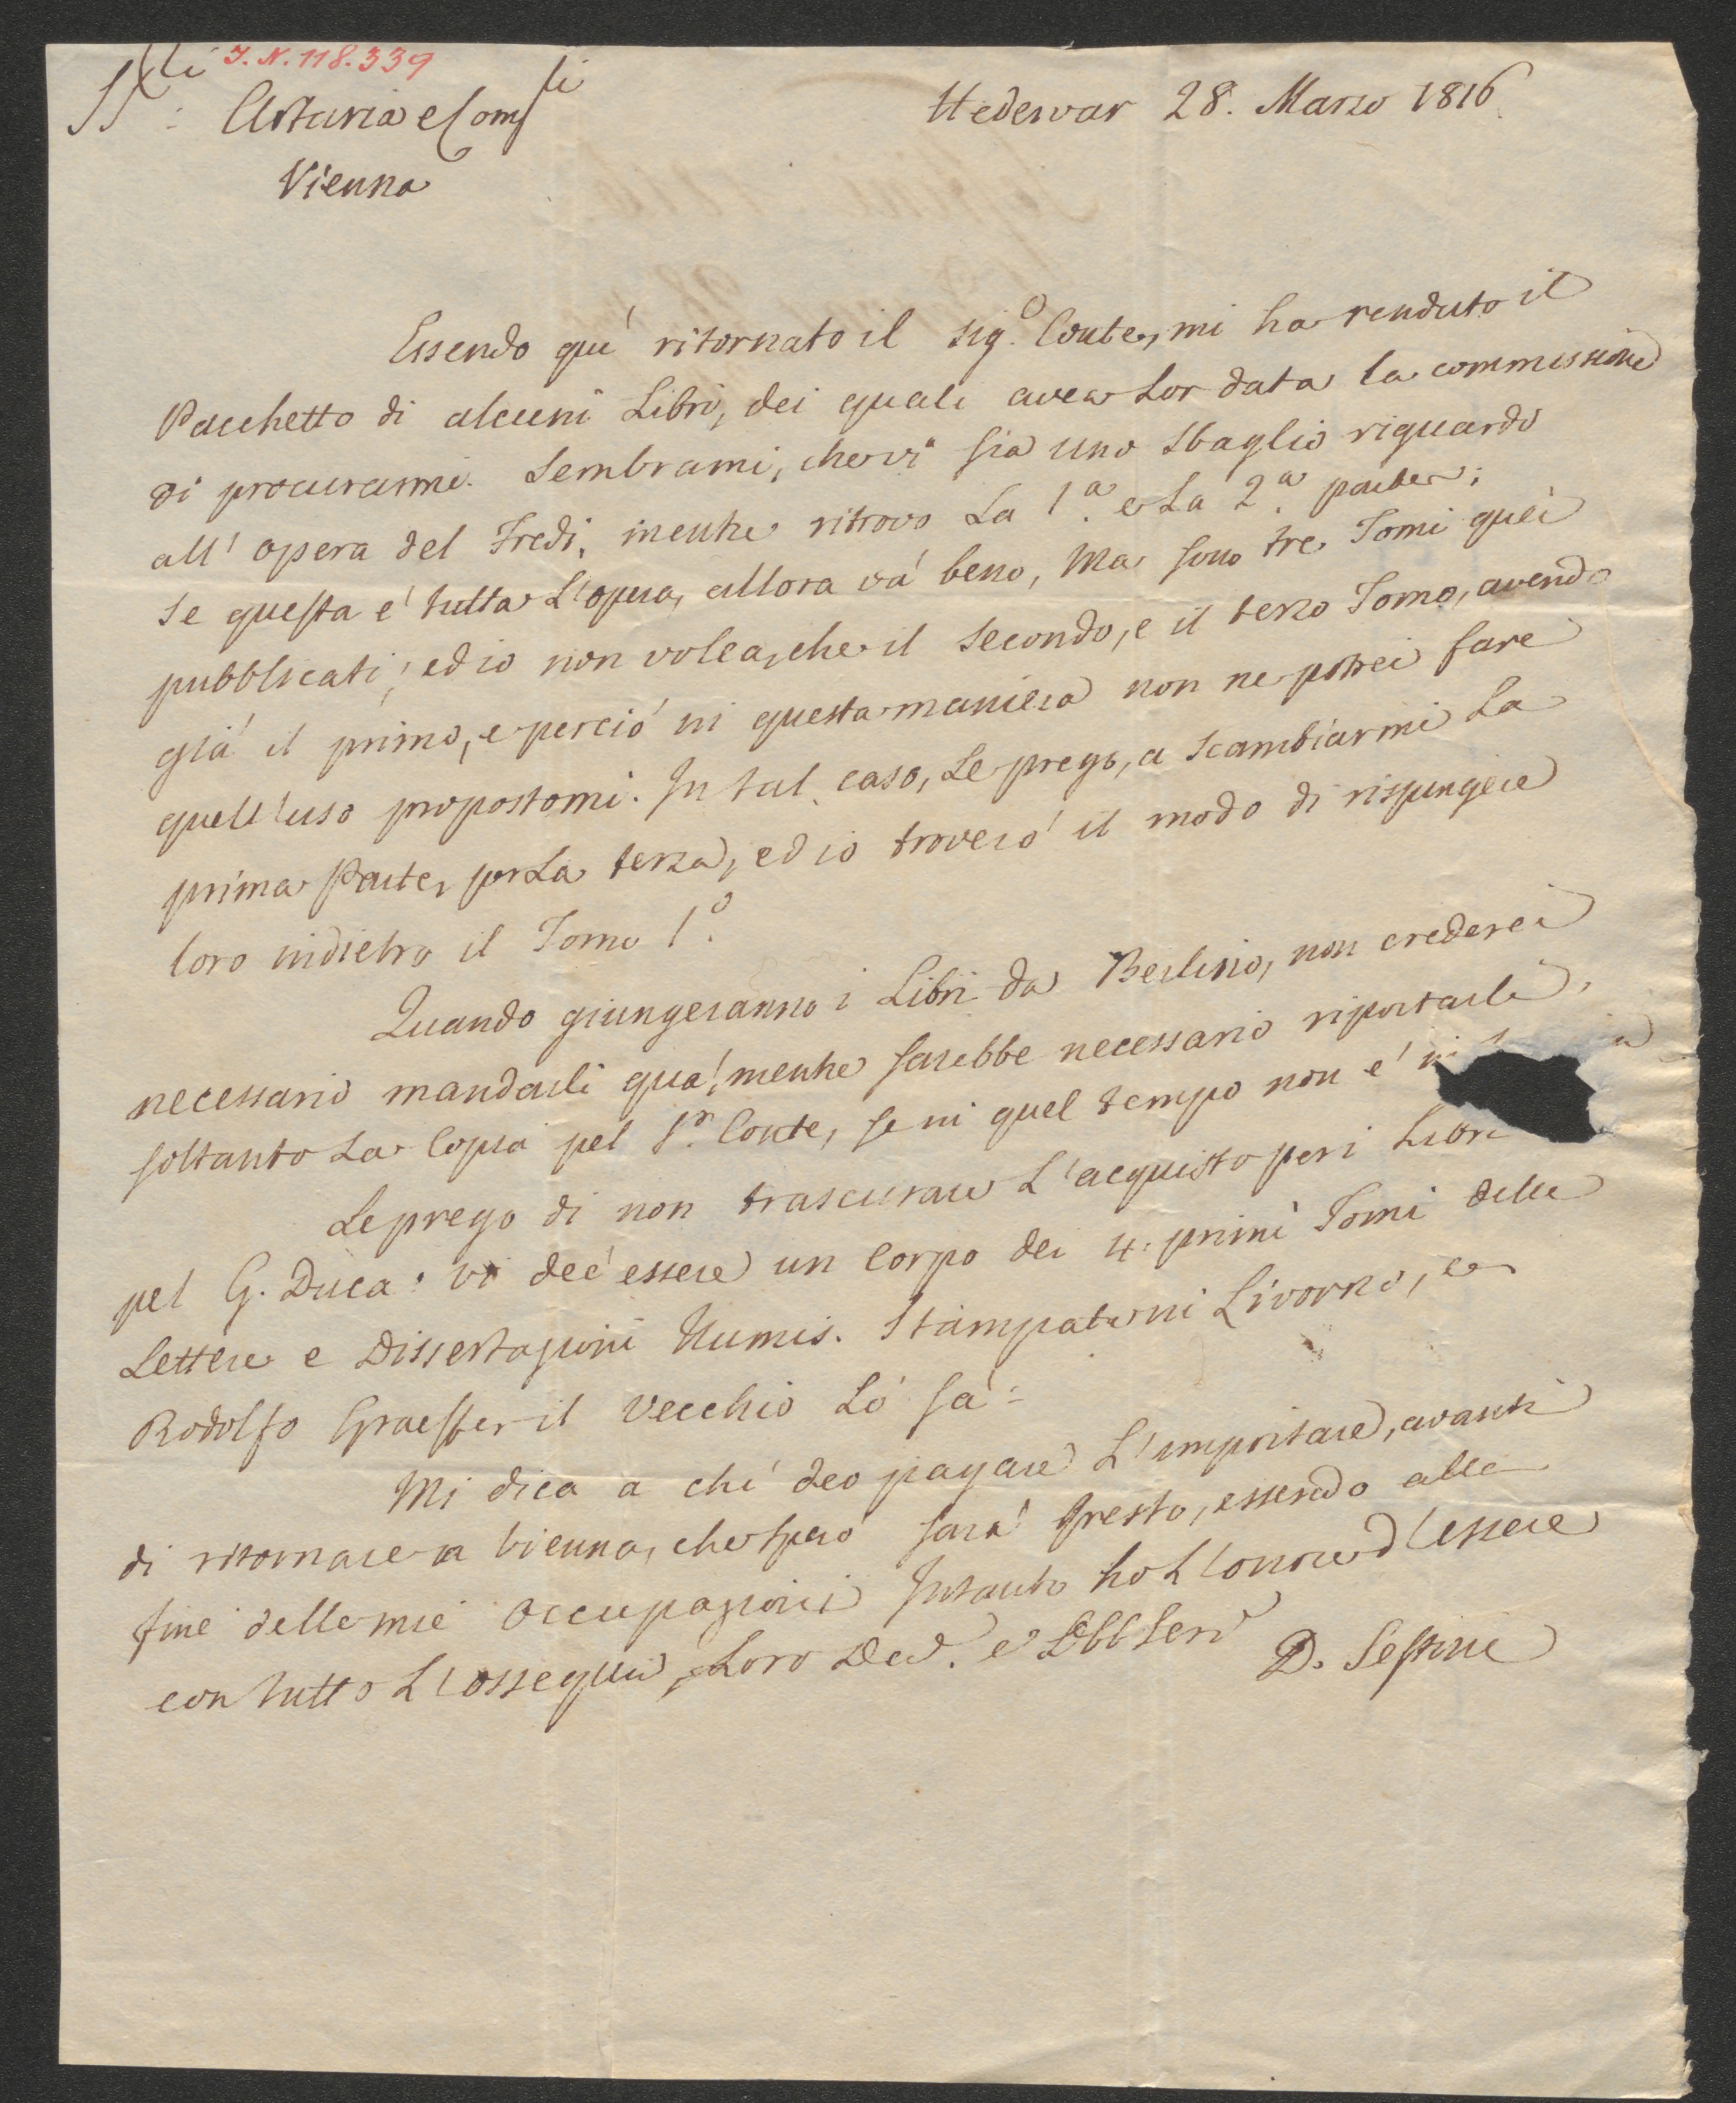 I. N. 118.339
SS:ri Artaria e Comp
Vienna
Hedervar 28. Marzo 1816
Essendo quì ritornato il Sig.o Conte, mi ha renduto il
Pacchetto di alcuni Libri, dei quali avea Lor data la commissione
di procurarmi. Sembrami, che vi sia uno sbaglio riguardo
all' opera del mentre ritrovo La 1.a e La 2.a parte;
Se questa e' tutta L'opera, allora và bene, Ma sono tre Tomi quei
pubblicati; ed io non volea, che il Secondo, e il terzo Tomo, avendo
già il primo, e perciò in questa maniera non ne potrei fare
quell'uso propostomi. In tal caso, Le prego, a Scambiarmi La
prima Parte, per La terza, ed io troverò il modo di rispingere
loro indietro il Tomo 1.o
Quando giungeranno i Libri da Berlino, non crederei
necessario mandarli quà, mentre sarebbe necessario riportarli,
soltanto La Copia pel S.r Conte, se in quel tempo non e' in
Le prego di non trascurare L'acquisto per i Libri
pel G. Duca: vi dee essere un Corpo dei 4. primi Tomi delle
Lettere e Dissertazioni Numis. Stampate in Livorno, e
Rodolfo Graeffer il Vecchio Lo sà:
Mi dica a chi deo pagare L'importare, avanti
di ritornare a Vienna, che spero sarà presto, essendo alla
fine delle mie occupazioni Intanto ho L'onore d'essere
con tutto L'ossequio, Loro Dev. e Obb Serv
D. Sestini